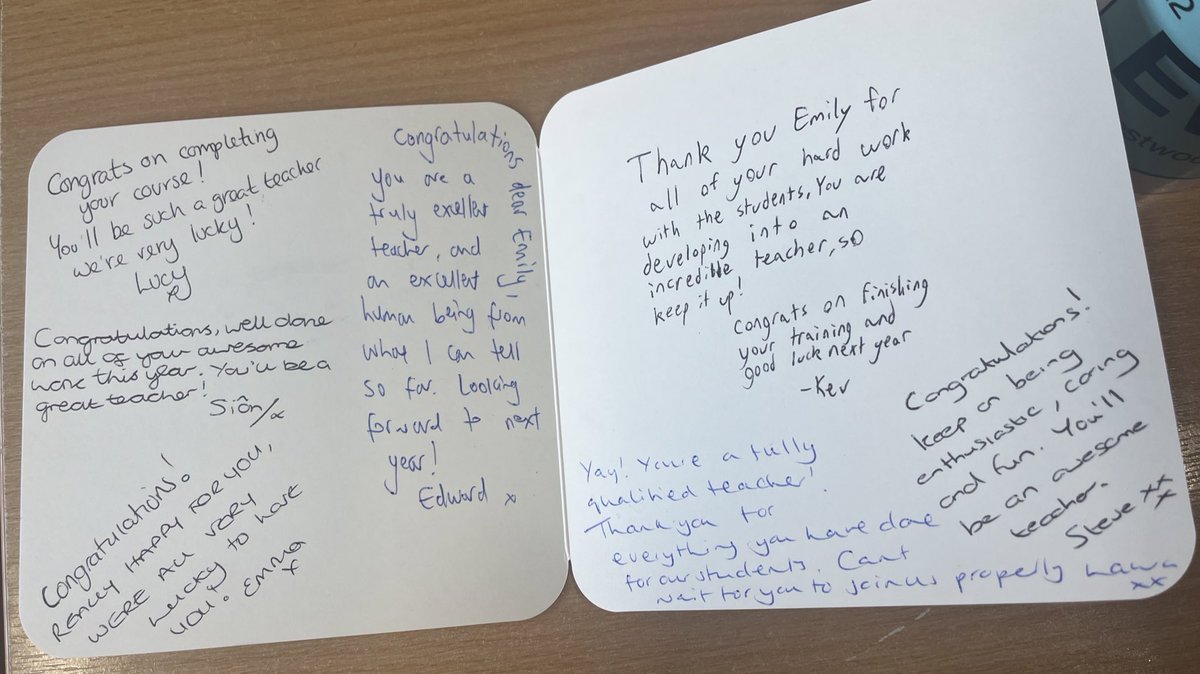 Congrats on completing
your course!
You'll be such a great teacher
we're very lucky!
Lucy
x
Congratulations, well done
on all of your awesome
work this year. You'll be a
great teacher!
Siôn/x
Congratulations!
REALLY HAPPY FOR YOU,
WERE ALL VERY
LUCKY TO HAVE
YOU. EMMA
x
Congratulations dear Emily,
you are a
truly excellent
teacher, and
an excellent
human being from
what I can tell
so far. Looking
forward to next
year!
Edward x
Thank you Emily for
all of your hard work
with the students. You are
developing into an
incredible teacher, so
keep it up!
Congrats on finishing
your training and
good luck next year
-Kev
Congratulations!
Keep on being
enthusiastic, caring
and fun. You'll
be an awesome
teacher.
Steve xx
x
Yay! You're a fully
qualified teacher!
Thank you for
everything you have done
for our students. Cant
wait for you to join us properly
xx
2
E